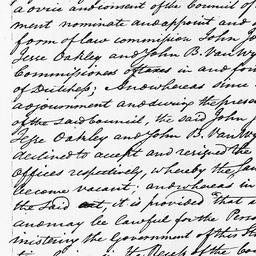 advice and consent of the Council of
ment nominate and appoint and
form of law commission John
Jesse Oakley and John B. Van W
Commissioners of taxes in and for
of Dutchess; And whereas since
adjournment and during the prese
of the said Council, the said John
Jesse Oakley and John B. Van W
declined to accept and resigned the
offices respectively, whereby the sa
become vacant; and whereas in
the said act, it is provided that
and may be lawful for the Pers
mistering the Government of this St
in the Recess of the Cou